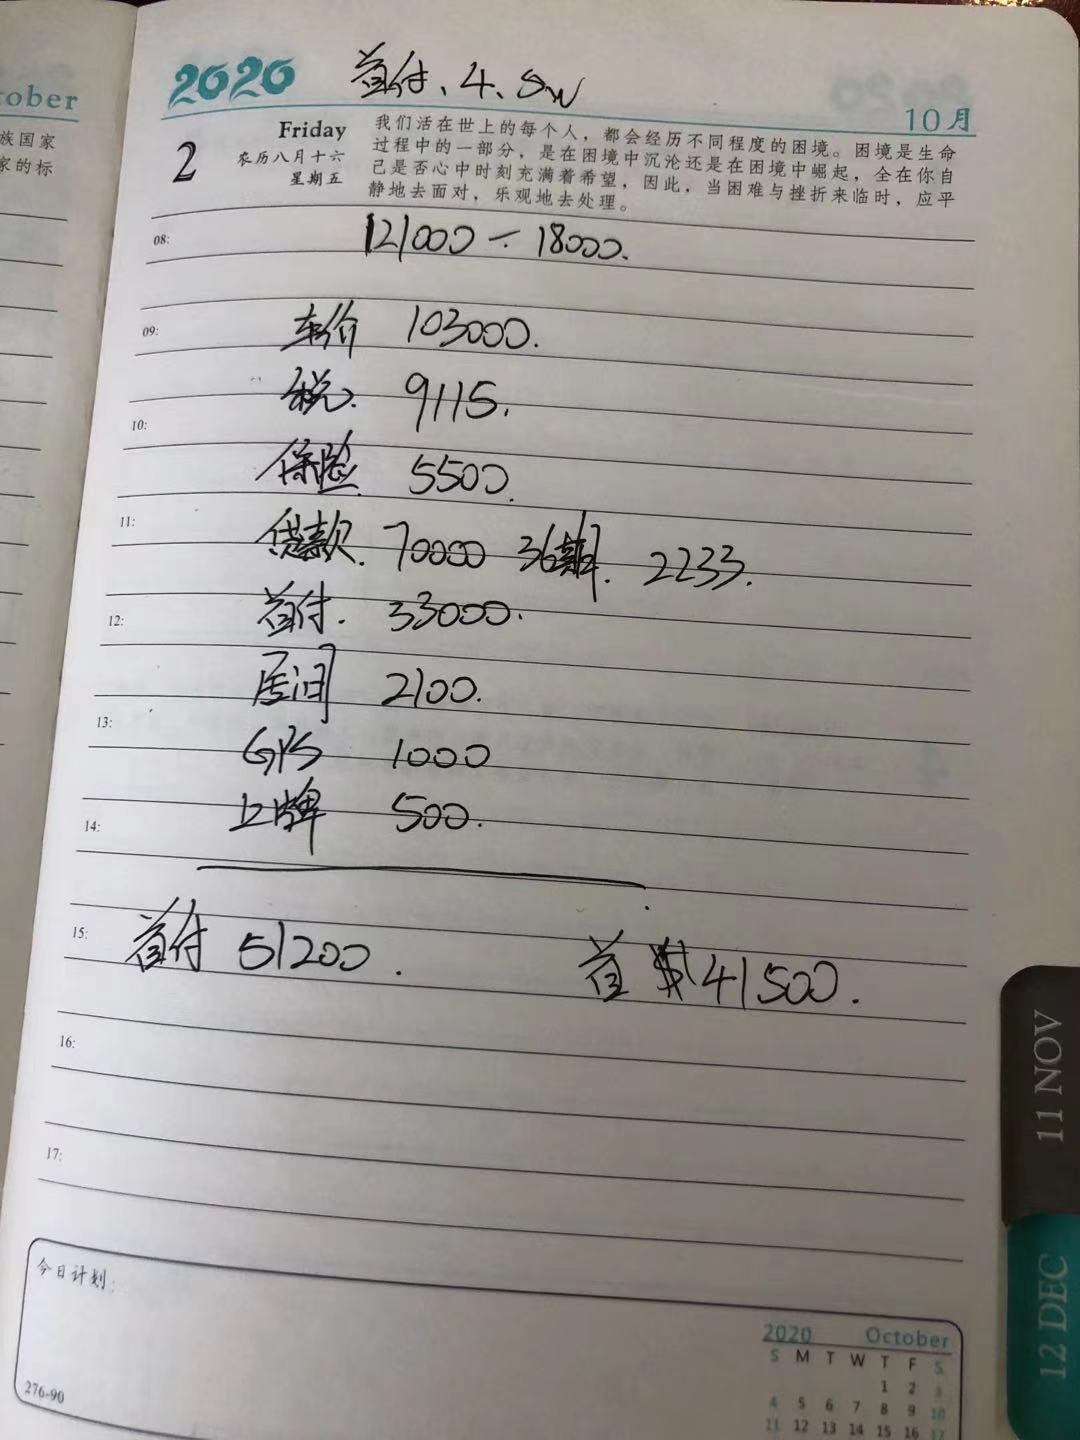 tober
族国家
家的标
2020
首付、4.8w
10月
2
Friday
农历八月十六
星期五
我们活在世上的每个人，都会经历不同程度的困境。困境是生命
过程中的一部分，是在困境中沉沦还是在困境中崛起，全在你自
己是否心中时刻充满着希望，因此，当困难与挫折来临时，应平
静地去面对，乐观地去处理。
08:
121000 - 18000.
09:
车价 103000.
税. 9115.
10:
保险 5500.
11:
贷款. 70000 36期. 2233.
12:
首付. 33000.
居间 2100.
13:
GPS 1000
上牌 500.
14:
15:
首付 51200.
首 41500.
16:
17:
今日计划:
276-90
2020 October
S M T W T F S
1 2 3
4 5 6 7 8 9 10
11 12 13 14 15 16 17
11 NOV
12 DEC